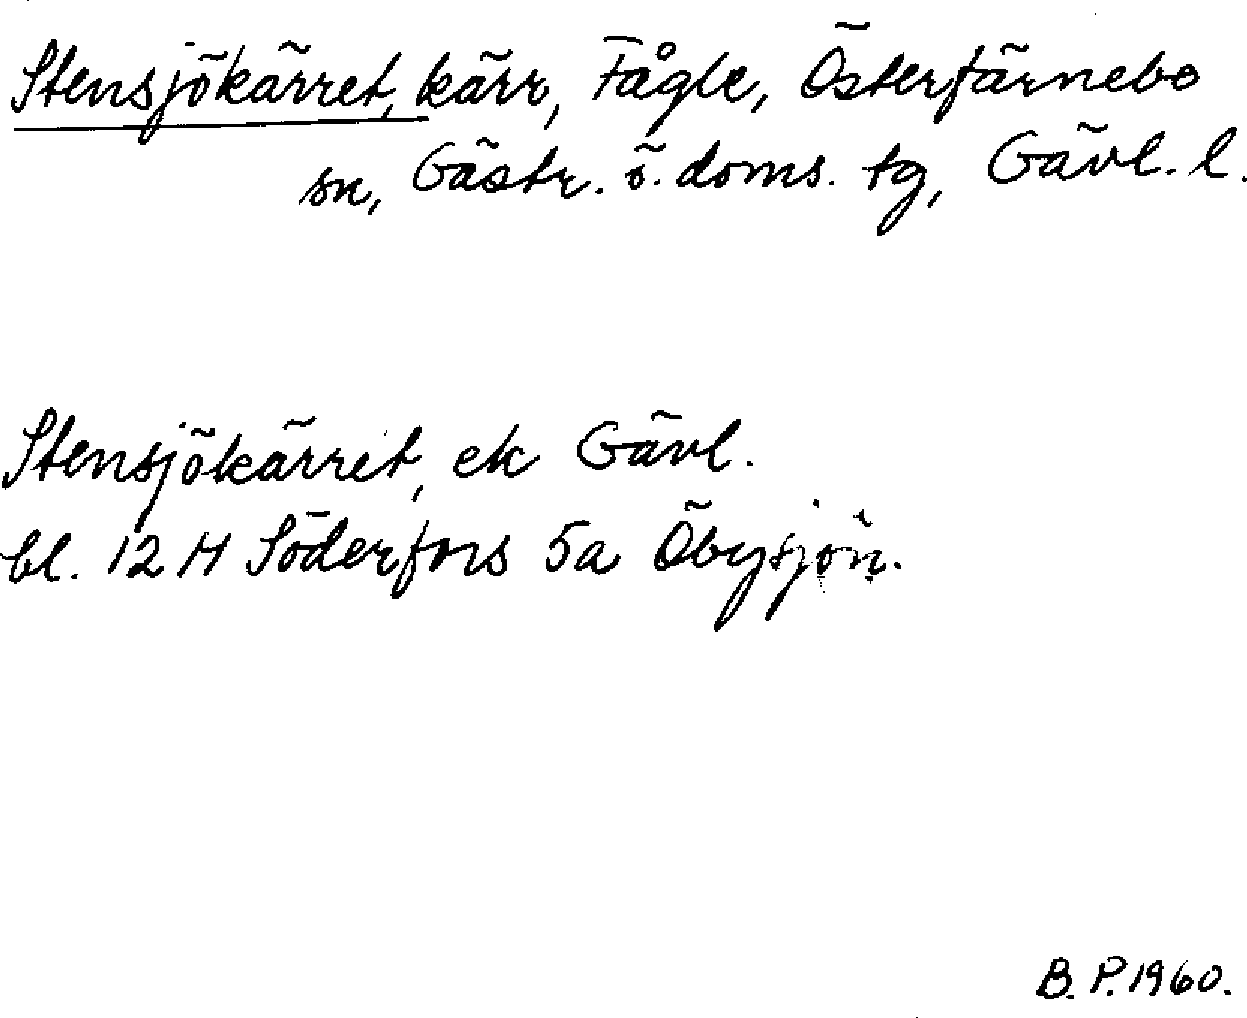 Stensjökärret, kärr, Fågle, Österfärnebo
sn, Gästr. ö. doms. tg, Gävl. l.
Stensjökärret, ek Gävl.
bl. 12 H Söderfors 5a Öbysjön.
B. P. 1960.